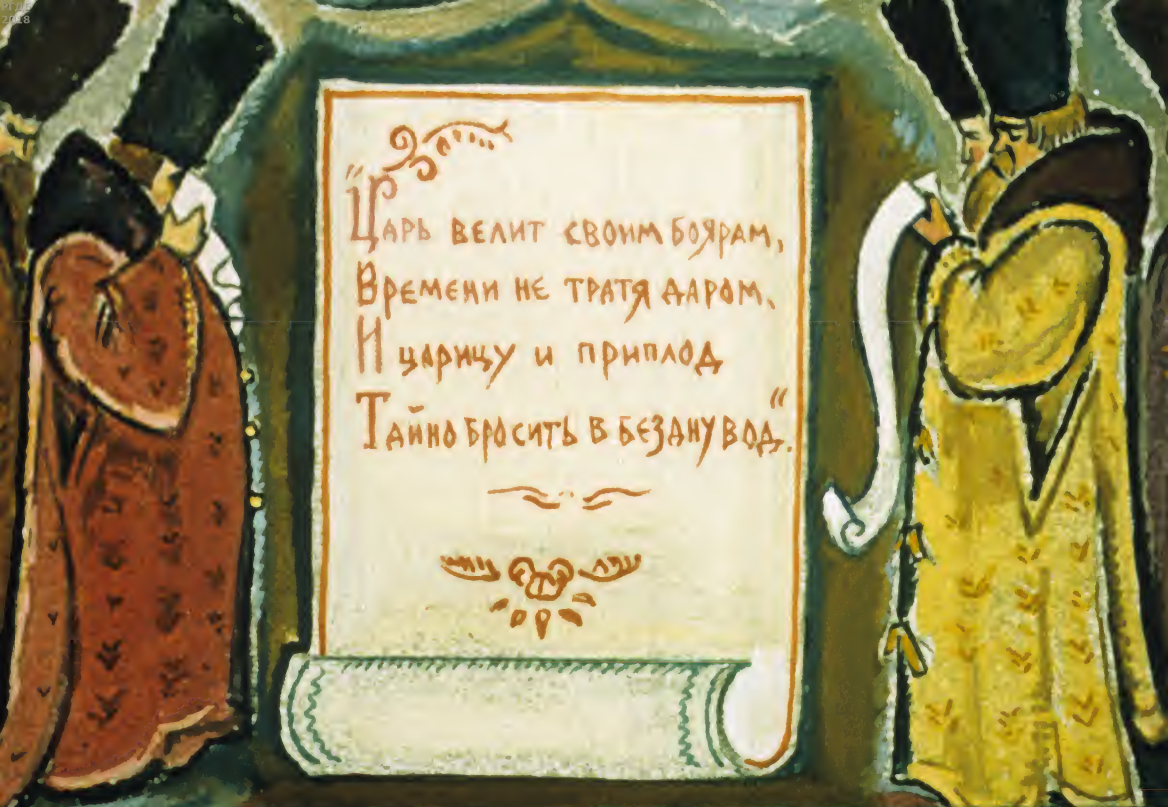 "Царь велит своим боярам,
Времени не тратя даром,
И царицу и приплод
Тайно бросить в бездну вод".
2018